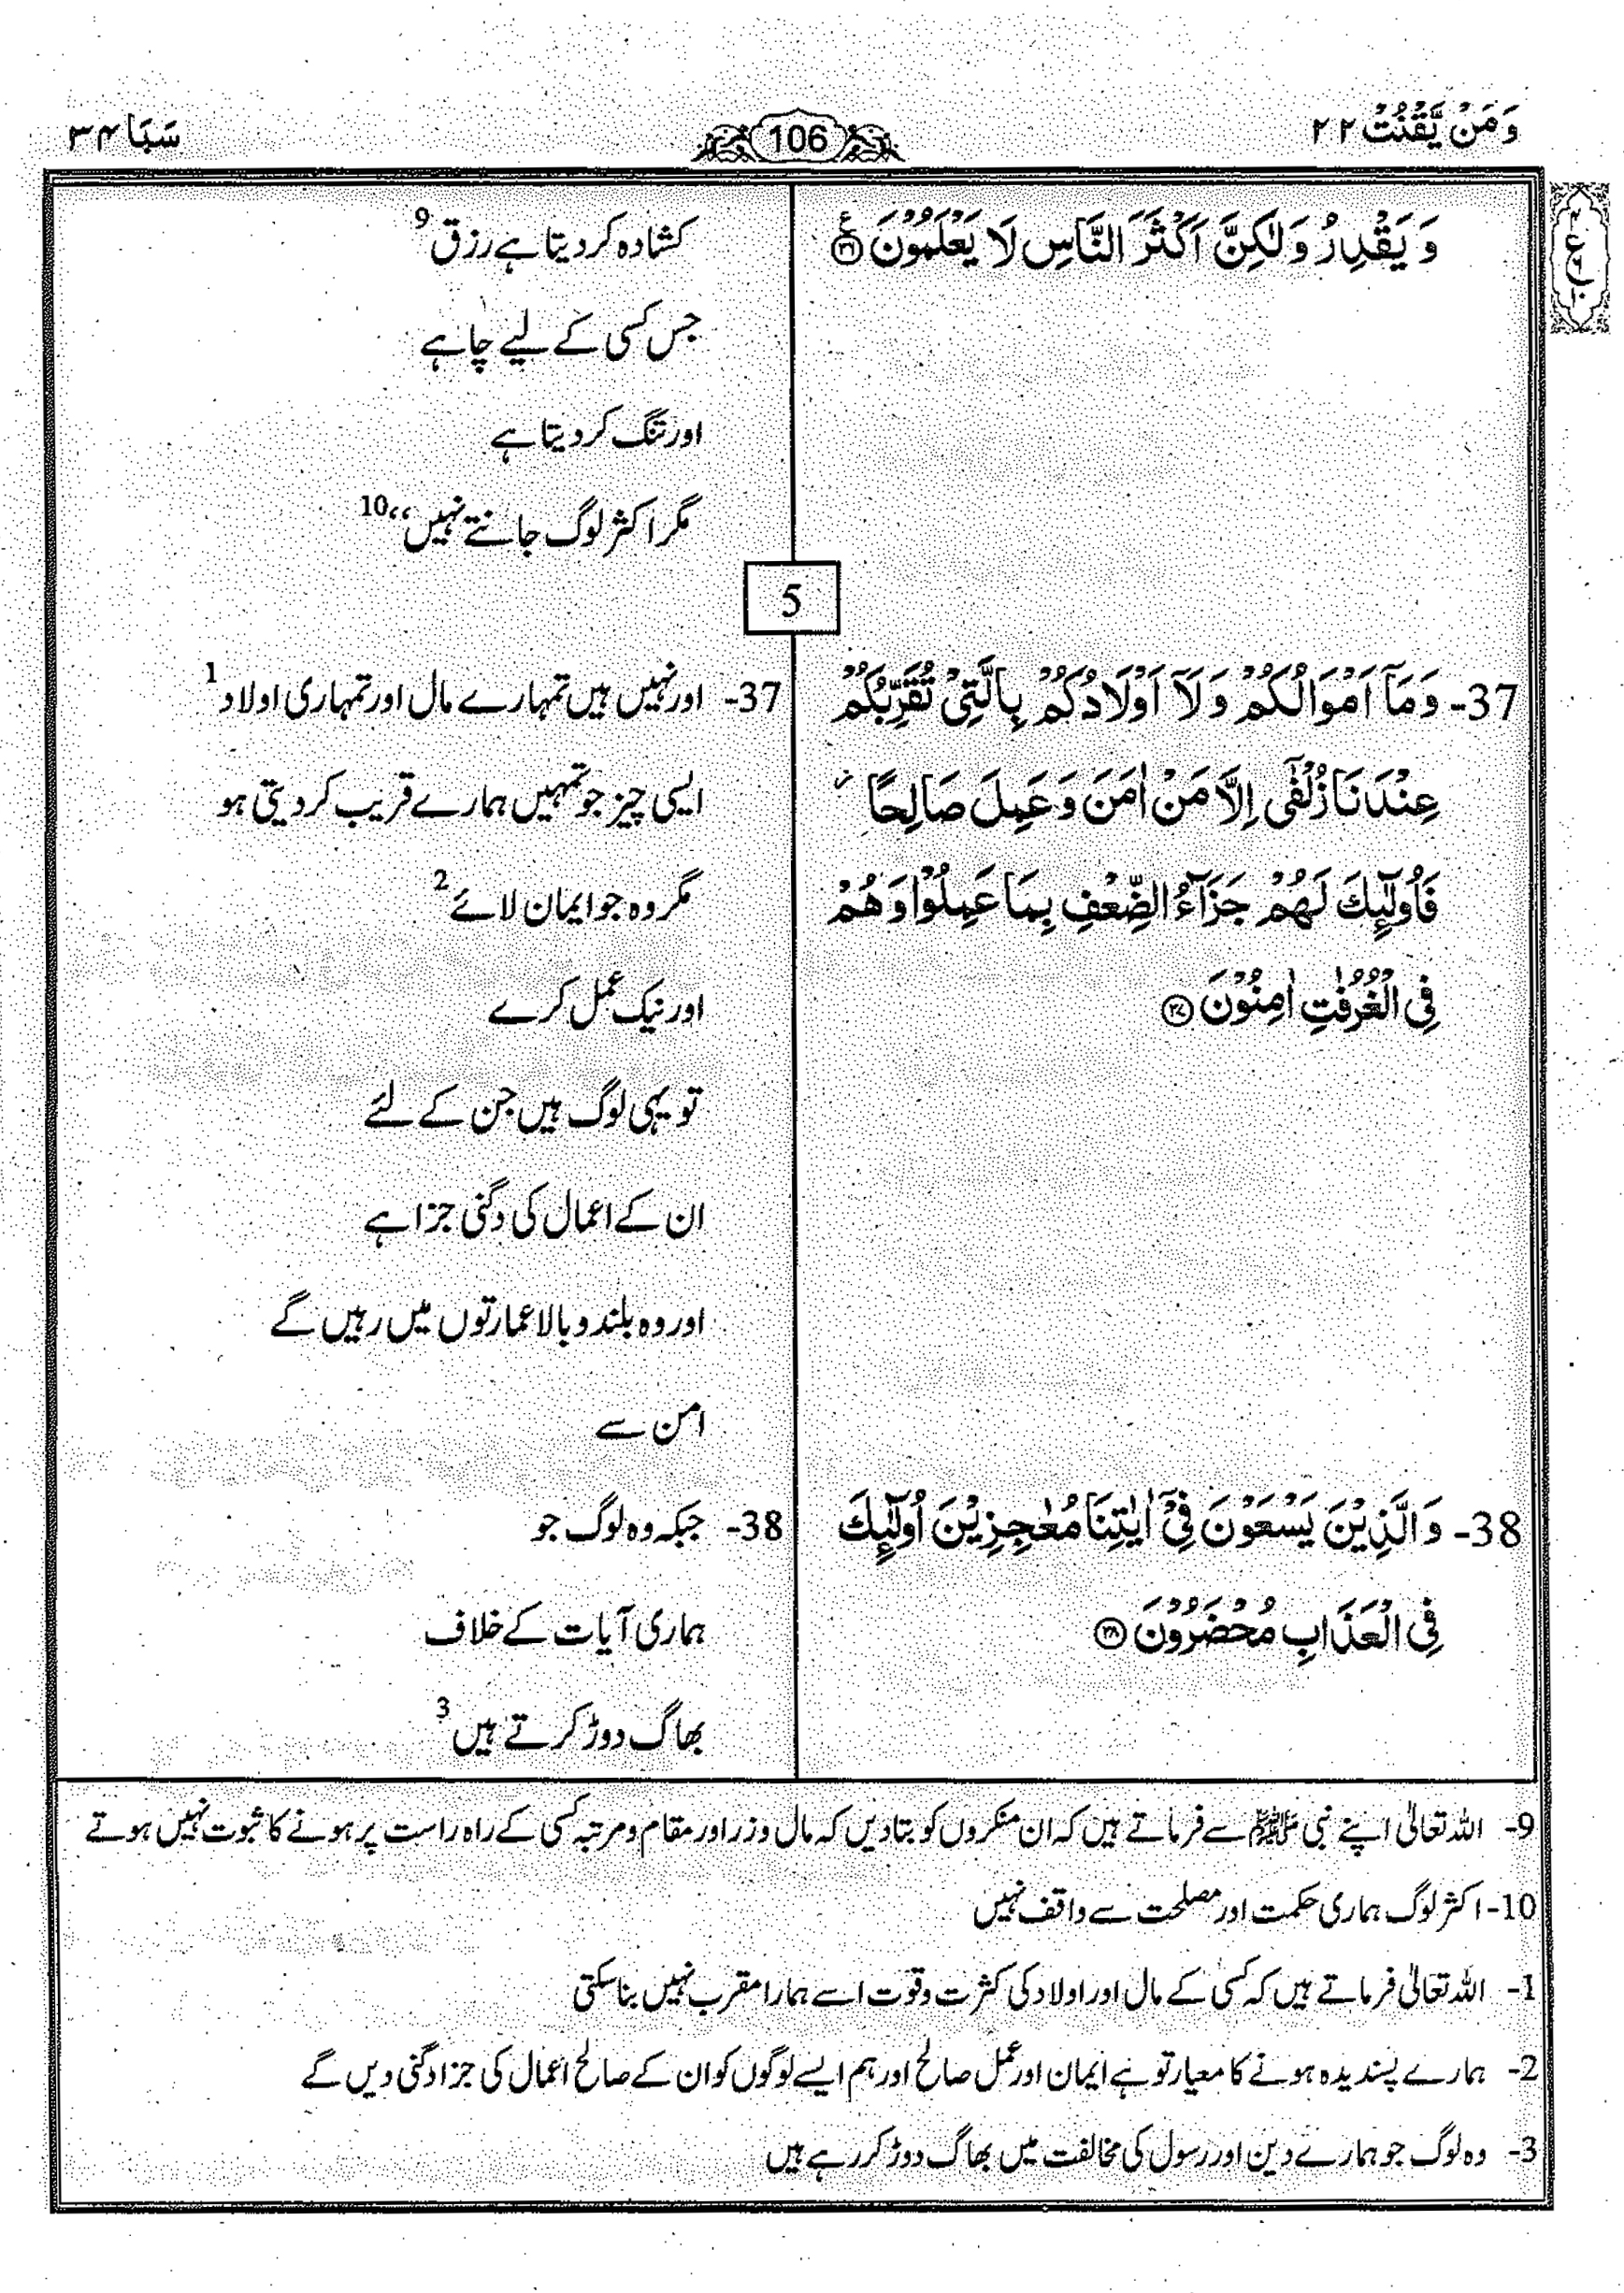 وَمَنْ يَّقْنُتْ ۲۲
106
سَبَا ۳۴
وَ يَقْدِرُ وَلٰكِنَّ اَكْثَرَ النَّاسِ لَا يَعْلَمُوْنَ ۝۳۶
کشادہ کر دیتا ہے رزق 9
جس کسی کے لیے چاہے
اور تنگ کر دیتا ہے
مگر اکثر لوگ جانتے نہیں“ 10
5
37- وَمَآ اَمْوَالُكُمْ وَلَآ اَوْلَادُكُمْ بِالَّتِيْ تُقَرِّبُكُمْ
عِنْدَنَا زُلْفٰٓى اِلَّا مَنْ اٰمَنَ وَعَمِلَ صَالِحًا ز
فَاُولٰٓئِكَ لَهُمْ جَزَآءُ الضِّعْفِ بِمَا عَمِلُوْا وَهُمْ
فِي الْغُرُفٰتِ اٰمِنُوْنَ ۝۳۷
37- اور نہیں ہیں تمہارے مال اور تمہاری اولاد 1
ایسی چیز جو تمہیں ہمارے قریب کر دیتی ہو
مگر وہ جو ایمان لائے 2
اور نیک عمل کرے
تو یہی لوگ ہیں جن کے لئے
ان کے اعمال کی دگنی جزا ہے
اور وہ بلند و بالا عمارتوں میں رہیں گے
امن سے
38- وَالَّذِيْنَ يَسْعَوْنَ فِيْٓ اٰيٰتِنَا مُعٰجِزِيْنَ اُولٰٓئِكَ
فِي الْعَذَابِ مُحْضَرُوْنَ ۝۳۸
38- جبکہ وہ لوگ جو
ہماری آیات کے خلاف
بھاگ دوڑ کرتے ہیں 3
9- اللہ تعالیٰ اپنے نبی ﷺ سے فرماتے ہیں کہ ان منکروں کو بتا دیں کہ مال و زر اور مقام و مرتبہ کسی کے راہ راست پر ہونے کا ثبوت نہیں ہوتے
10- اکثر لوگ ہماری حکمت اور مصلحت سے واقف نہیں
1- اللہ تعالیٰ فرماتے ہیں کہ کسی کے مال اور اولاد کی کثرت وقوت اسے ہمارا مقرب نہیں بنا سکتی
2- ہمارے پسندیدہ ہونے کا معیار تو ہے ایمان اور عمل صالح اور ہم ایسے لوگوں کو ان کے صالح اعمال کی جزا دگنی دیں گے
3- وہ لوگ جو ہمارے دین اور رسول کی مخالفت میں بھاگ دوڑ کر رہے ہیں